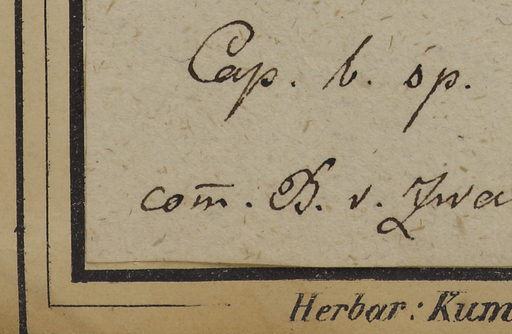 Cap. b. sp.
com̅. B. v. Zwa
Herbar: Kum